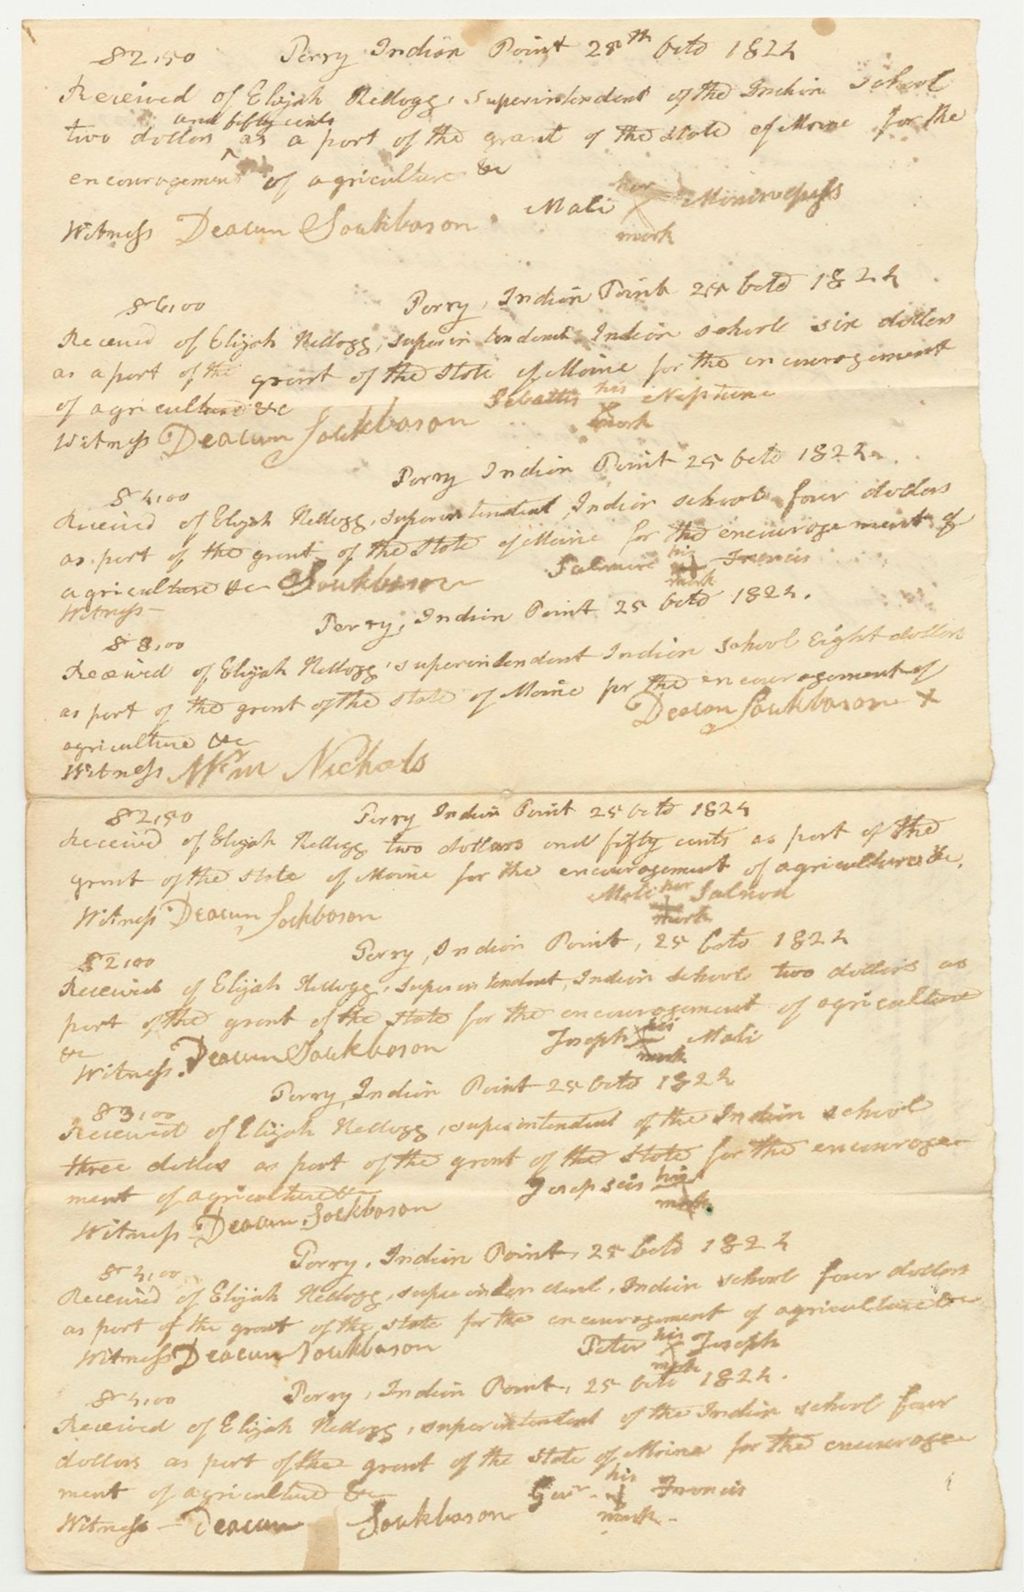 $2,50 Perry Indian Point 25th Octo 1824
Received of Elijah Kellogg, superintendent of the Indian School
and fifty cents
two dollars ^ as a part of the grant of the state of Maine for the
encouragement of agriculture &c
Mali her
mark
Witness Deacun Sockbason
$6,00 Perry, Indian Point 25 Octo 1824
Received of Elijah Kellogg, superintendent, Indian school six dollars
as a part of the grant of the state of Maine for the encouragement
of agriculture &c Sabattis his Neptune
mark
Witness Deacun Sockbason
Perry Indian Point 25 Octo 1824.
$4,00
Received of Elijah Kellogg, superintendent, Indian school four dollars
as part of the grant of the state of Maine for the encouragement of
agriculture &c Sockbason his Francis
mark
Witness
Perry, Indian Point 25 Octo 1824.
$8,00
Received of Elijah Kellogg, superintendent Indian school Eight dollars
as part of the grant of the state of Maine for the encouragement of
agriculture &c Deacon Sockbason X
Witness Wm Nichols
$2,50 Perry Indian Point 25 Octo 1824
Received of Elijah Kellogg two dollars and fifty cents as part of the
grant of the state of Maine for the encouragement of agriculture &c.
Mali her Salmon
mark
Witness Deacun Sockbason
$2,00 Perry, Indian Point, 25 Octo 1824
Received of Elijah Kellogg, superintendent, Indian school two dollars as
part of the grant of the state for the encouragement of agriculture
&c Joseph his Mali
mark
Witness. Deacun Sockbason
Perry, Indian Point 25 Octo 1824
$3,00
Received of Elijah Kellogg, superintendent of the Indian school
three dollas as part of the grant of the state for the encourage-
ment of agriculture &c his
mark
Witness Deacun Sockbason
Perry, Indian Point, 25 Octo 1824
$4,00
Received of Elijah Kellogg, superintendent, Indian school four dollars
as part of the grant of the state for the encouragement of agriculture &c
Peter his Joseph
mark
Witness Deacun Sockbason
Perry, Indian Point, 25 Octo 1824.
$4,00
Received of Elijah Kellogg, superintendent of the Indian school four
dollars as part of the grant of the state of Maine for the encourage-
ment of agriculture &c Govr. his Francis
mark
Witness - Deacun Sockbason